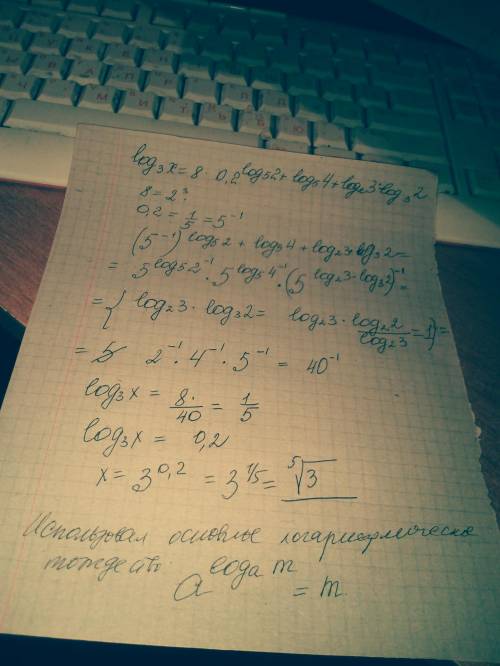 log₃x = 8 · 0,2^(log₅2 + log₅4 + log₂3·log₃2)
8 = 2³
0,2 = 1/5 = 5⁻¹
(5⁻¹)^(log₅2 + log₅4 + log₂3·log₃2) =
= 5^(log₅2⁻¹) · 5^(log₅4⁻¹) · (5^(log₂3·log₃2))⁻¹ =
= { log₂3 · log₃2 = log₂3 · log₂2/log₂3 = 1 } =
= 2⁻¹ · 4⁻¹ · 5⁻¹ = 40⁻¹
log₃x = 8·/40 = 1/5
log₃x = 0,2
x = 3^0,2 = 3^1/5 = ⁵√3
Использовал основные логарифмическо
тождество
a^(log_a m) = m